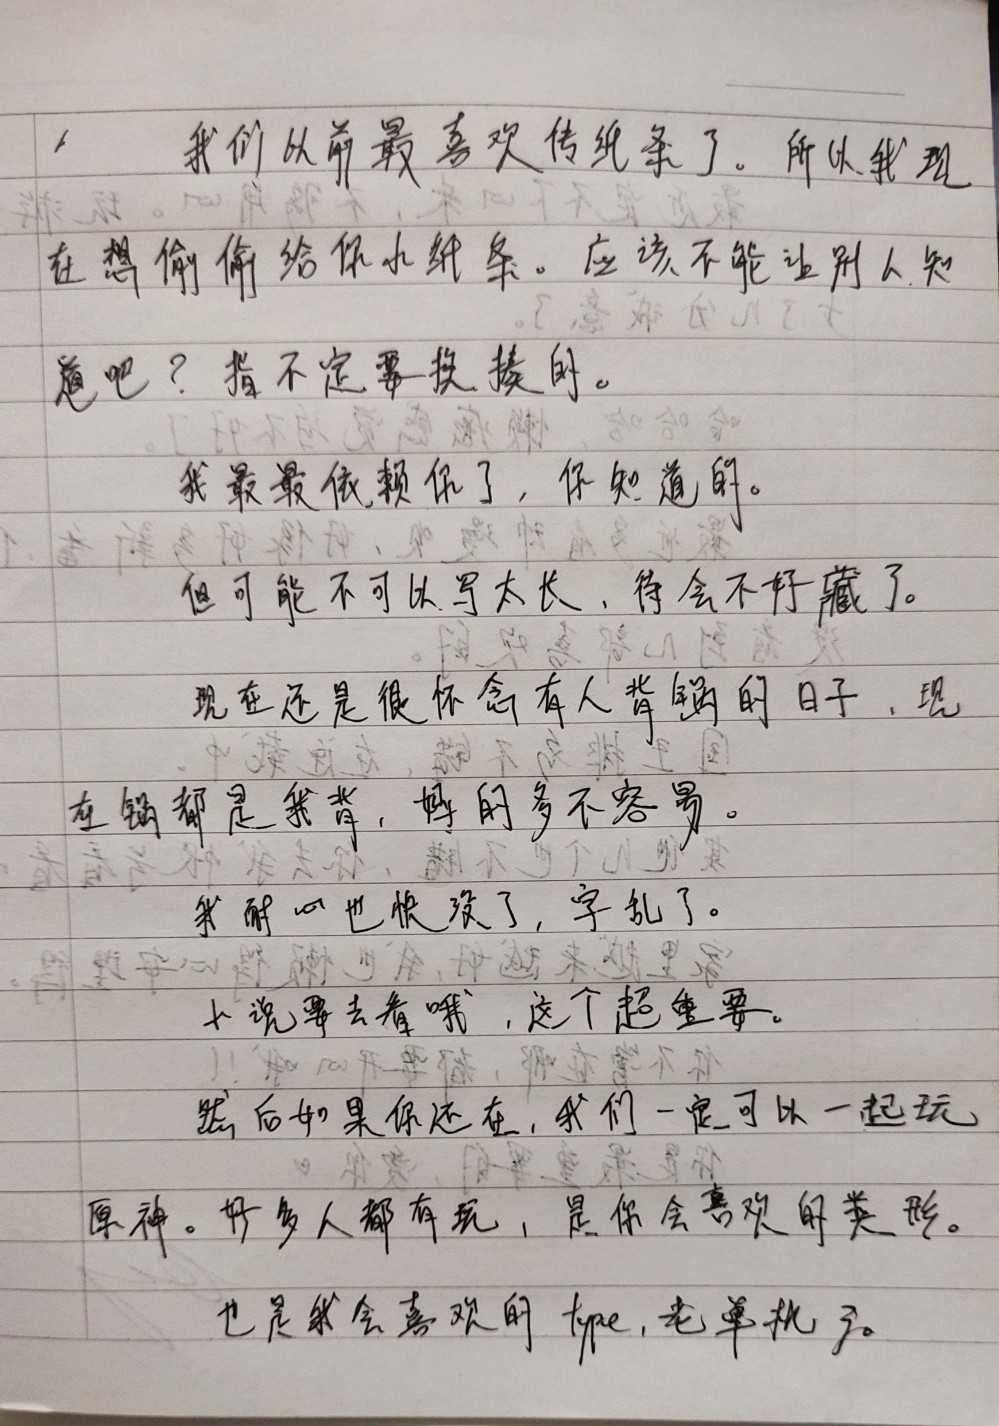 我们以前最喜欢传纸条了。所以我现
在想偷偷给你小纸条。应该不能让别人知
道吧？指不定要挨揍的。
我最最依赖你了，你知道的。
但可能不可以写太长，待会不好藏了。
现在还是很怀念有人背锅的日子，现
在锅都是我背，妈的多不容易。
我耐心也快没了，字乱了。
小说要去看哦，这个超重要。
然后如果你还在，我们一定可以一起玩
原神。好多人都有玩，是你会喜欢的类形。
也是我会喜欢的type，老单机了。